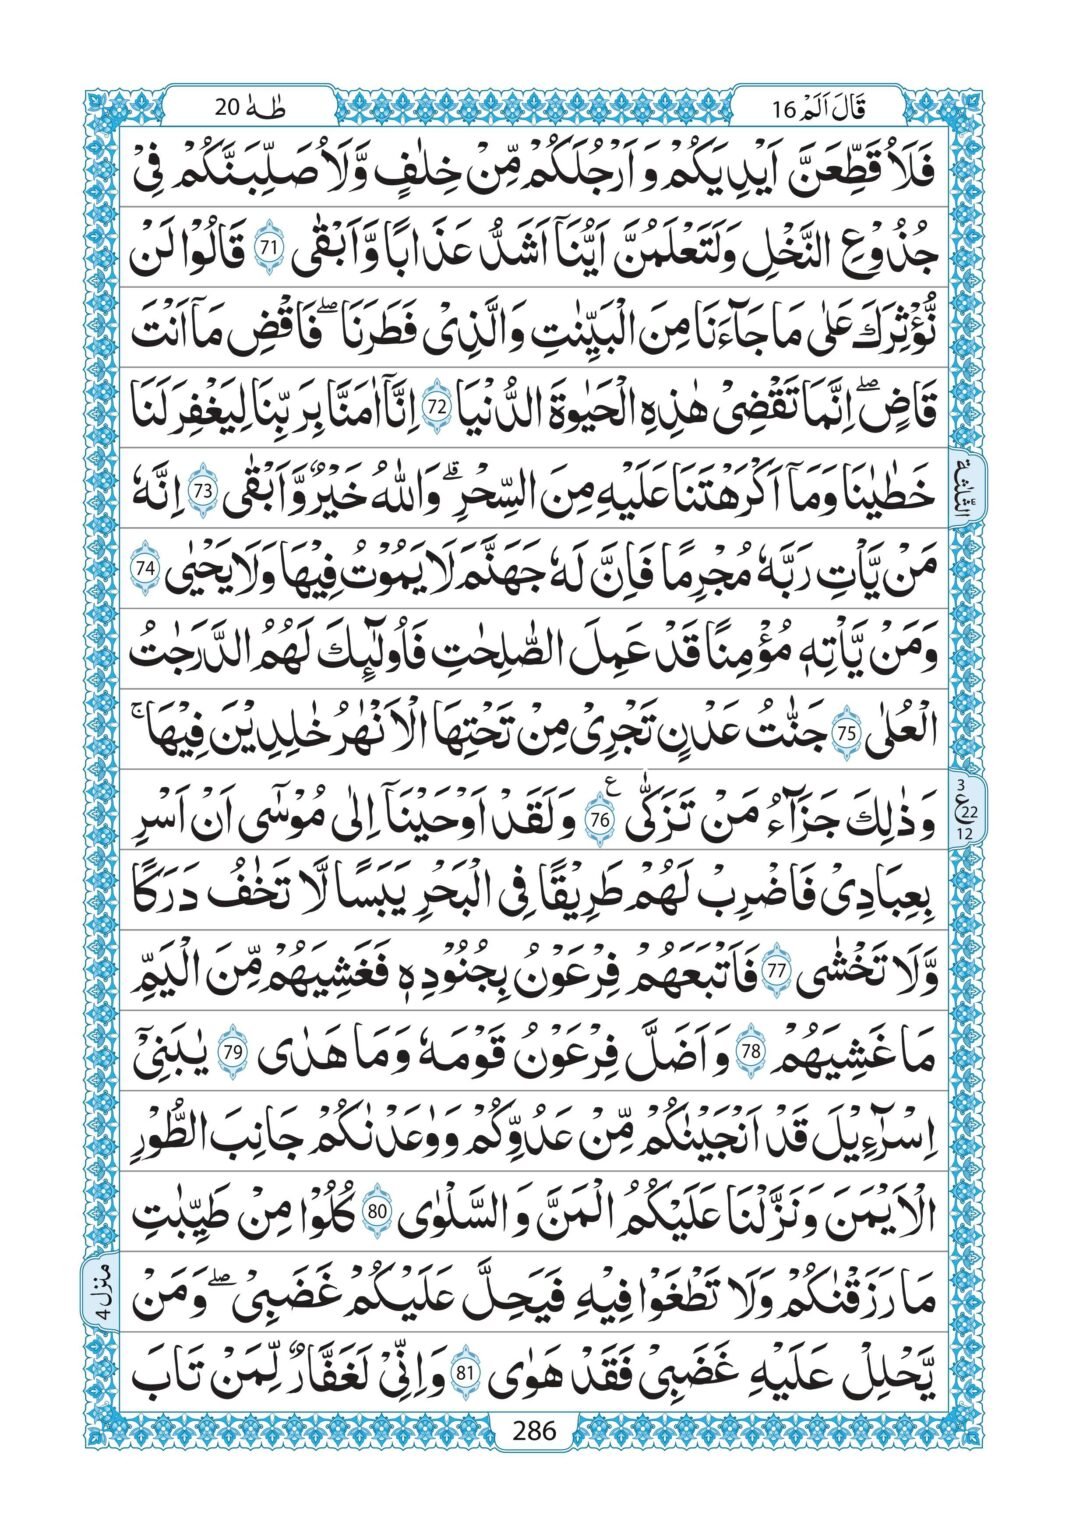 قَالَ اَلَمْ 16
طٰهٰ 20
فَلَاُقَطِّعَنَّ اَيْدِيَكُمْ وَ اَرْجُلَكُمْ مِّنْ خِلٰفٍ وَّلَاُصَلِّبَنَّكُمْ فِيْ
جُذُوْعِ النَّخْلِ وَلَتَعْلَمُنَّ اَيُّنَاۤ اَشَدُّ عَذَابًا وَّاَبْقٰى 71 قَالُوْا لَنْ
نُّؤْثِرَكَ عَلٰى مَا جَآءَنَا مِنَ الْبَيِّنٰتِ وَالَّذِيْ فَطَرَنَا ۖ فَاقْضِ مَاۤ اَنْتَ
قَاضٍ ۖ اِنَّمَا تَقْضِيْ هٰذِهِ الْحَيٰوةَ الدُّنْيَا 72 اِنَّاۤ اٰمَنَّا بِرَبِّنَا لِيَغْفِرَ لَنَا
خَطٰيٰنَا وَمَاۤ اَكْرَهْتَنَا عَلَيْهِ مِنَ السِّحْرِ ۗ وَاللّٰهُ خَيْرٌ وَّاَبْقٰى 73 اِنَّهٗ
الثلثة
مَنْ يَّاْتِ رَبَّهٗ مُجْرِمًا فَاِنَّ لَهٗ جَهَنَّمَ لَا يَمُوْتُ فِيْهَا وَلَا يَحْيٰى 74
وَمَنْ يَّاْتِهٖ مُؤْمِنًا قَدْ عَمِلَ الصّٰلِحٰتِ فَاُولٰٓئِكَ لَهُمُ الدَّرَجٰتُ
الْعُلٰى 75 جَنّٰتُ عَدْنٍ تَجْرِيْ مِنْ تَحْتِهَا الْاَنْهٰرُ خٰلِدِيْنَ فِيْهَا ۚ
وَذٰلِكَ جَزَآءُ مَنْ تَزَكّٰى 76 ع وَلَقَدْ اَوْحَيْنَاۤ اِلٰى مُوْسٰۤى اَنْ اَسْرِ
3 ع 22 12
بِعِبَادِيْ فَاضْرِبْ لَهُمْ طَرِيْقًا فِي الْبَحْرِ يَبَسًا لَّا تَخٰفُ دَرَكًا
وَّلَا تَخْشٰى 77 فَاَتْبَعَهُمْ فِرْعَوْنُ بِجُنُوْدِهٖ فَغَشِيَهُمْ مِّنَ الْيَمِّ
مَا غَشِيَهُمْ 78 وَ اَضَلَّ فِرْعَوْنُ قَوْمَهٗ وَ مَا هَدٰى 79 يٰبَنِيْۤ
اِسْرَآءِيْلَ قَدْ اَنْجَيْنٰكُمْ مِّنْ عَدُوِّكُمْ وَوٰعَدْنٰكُمْ جَانِبَ الطُّوْرِ
الْاَيْمَنَ وَنَزَّلْنَا عَلَيْكُمُ الْمَنَّ وَ السَّلْوٰى 80 كُلُوْا مِنْ طَيِّبٰتِ
مَا رَزَقْنٰكُمْ وَلَا تَطْغَوْا فِيْهِ فَيَحِلَّ عَلَيْكُمْ غَضَبِيْ ۖ وَمَنْ
منزل 4
يَّحْلِلْ عَلَيْهِ غَضَبِيْ فَقَدْ هَوٰى 81 وَ اِنِّيْ لَغَفَّارٌ لِّمَنْ تَابَ
286